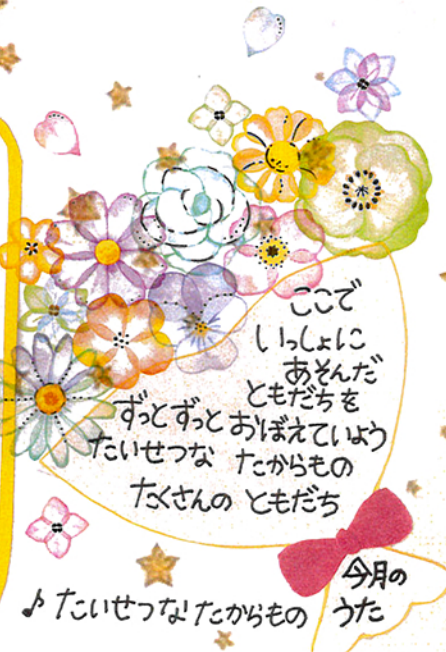 ここで
いっしょに
あそんだ
ともだちを
ずっとずっと おぼえていよう
たいせつな たからもの
たくさんの ともだち
今月の
うた
♪ たいせつなたからもの